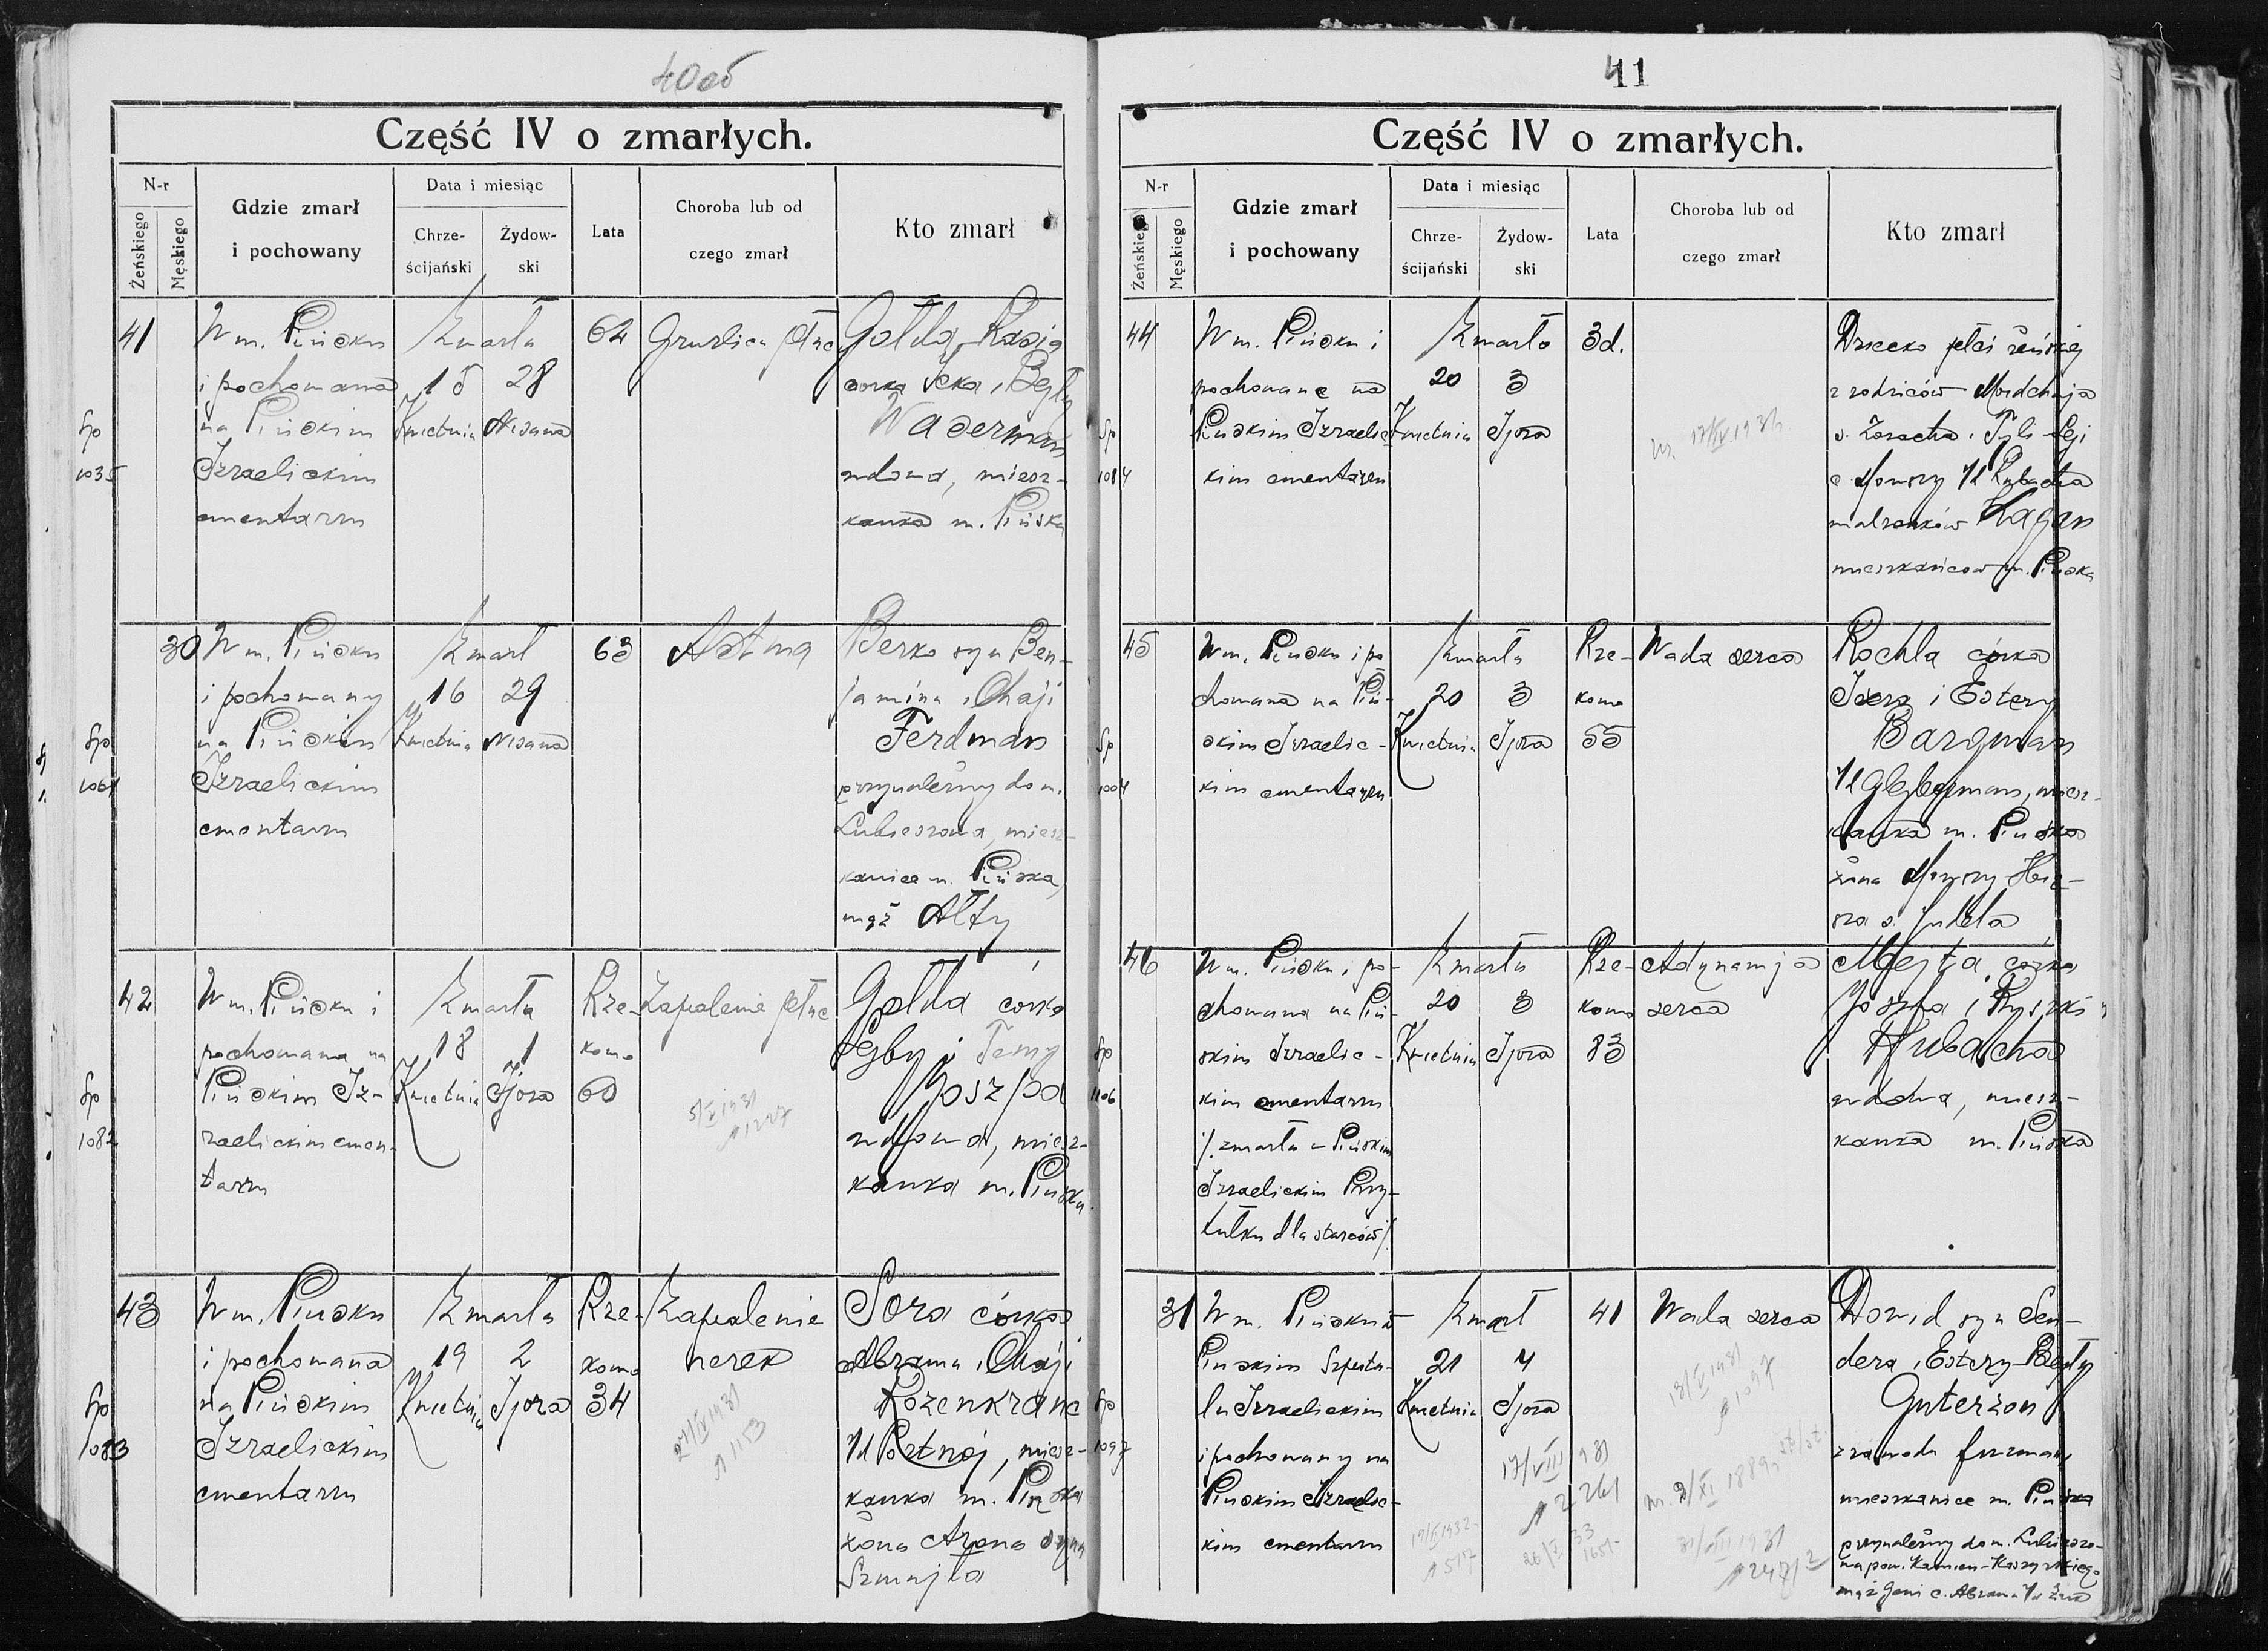 40об
Część IV o zmarłych.
N-r
Żeńskiego
Męskiego
Gdzie zmarł
i pochowany
Data i miesiąc
Chrze-
ścijański
Żydow-
ski
Lata
Choroba lub od
czego zmarł
Kto zmarł
41
W m. Pińsku
i pochowana
na Pińskim
Izraelickim
cmentarzu
Zmarła
15 28
Kwietnia Nisana
64
Gruźlica płuc
Gołda-Rasia
córka Icka i Bejły
Waserman
wdowa, miesz-
kanka m. Pińska
Sp
1035
30
W m. Pińsku
i pochowany
na Pińskim
Izraelickim
cmentarzu
Zmarł
16 29
Kwietnia Nisana
63
Astma
Berko syn Ben-
jamina i Chaji
Ferdman
przynależny do m.
Lubieszowa, miesz-
kaniec m. Pińska,
mąż Ałty
Sp
1061
42
W m. Pińsku i
pochowana na
Pińskim Iz-
raelickim cmen-
tarzu
Zmarła
18 1
Kwietnia Ijora
Rze-
komo
60
Zapalenie płuc
5/V 1931
Gołda córka
Lejby i Temy
Joszpa
wdowa, miesz-
kanka m. Pińska
Sp
1082
43
W m. Pińsku
i pochowana
na Pińskim
Izraelickim
cmentarzu
Zmarła
19 2
Kwietnia Ijora
Rze-
komo
34
Zapalenie
nerek
27/IV 1931
1153
Sora córka
Abrama i Chaji
Rozenkranc
1/1 Portnoj, miesz-
kanka m. Pińska
żona Arona syna
Szmujła
Sp
1083
41
Część IV o zmarłych.
N-r
Żeńskiego
Męskiego
Gdzie zmarł
i pochowany
Data i miesiąc
Chrze-
ścijański
Żydow-
ski
Lata
Choroba lub od
czego zmarł
Kto zmarł
44
W m. Pińsku i
pochowane na
Pińskim Izraelic-
kim cmentarzu
Zmarło
20 3
Kwietnia Ijora
3 d.
ur. 17/IV 1931
Dziecko płci żeńskiej
z rodziców Mordchaja
s. Zoracha i Tyli-Lei
c. Mowszy 1/1
małżonków Kagan
mieszkańców m. Pińska
Sp
1084
45
W m. Pińsku i po
chowana na Piń-
skim Izraelic-
kim cmentarzu
Zmarła
20 3
Kwietnia Ijora
Rze-
komo
55
Wada serca
Rochla córka
Isera i Estery
Bargman
1/1 miesz-
kanka m. Pińska
żona Mowszy-Her-
sza s. Judela
Sp
1004
46
W m. Pińsku i po-
chowana na Piń-
skim Izraelic-
kim cmentarzu
/. zmarła w Pińskim
Izraelickim Przy-
tułku dla starców/.
Zmarła
20 3
Kwietnia Ijora
Rze-
komo
83
Adynamja
serca
Mejta córka
Joszka i
Hubacha
wdowa, miesz-
kanka m. Pińska
Sp
1106
31
W m. Pińsku w
Pińskim Szpita-
lu Izraelickim
i pochowany na
Pińskim Izraelic-
kim cmentarzu
Zmarł
21 4
Kwietnia Ijora
17/VIII 931
2261
41
Wada serca
1097
ur. 2/XI 1889
Dowid syn Sen-
dera i Estery-Bejły
Guterzon
z zawodu furman
mieszkaniec m. Pińska
przynależny do m. Lubieszo-
wa pow. Kamień-Koszyrskiego
mąż Geni c. Abrama 1/1 Żuk
Sp
1097